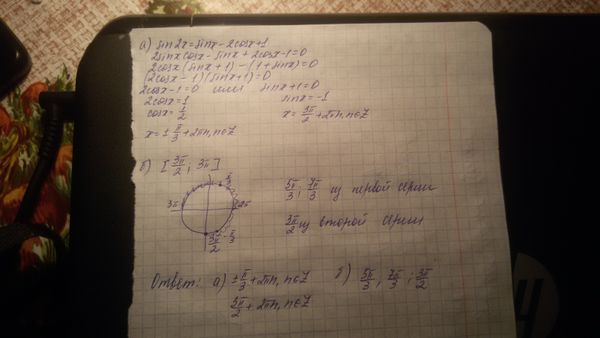 а) sin2x=sinx-2cosx+1
2sinx cosx-sinx+2cosx-1=0
2cosx(sinx+1)-(1+sinx)=0
(2cosx-1)(sinx+1)=0
2cosx-1=0 или sinx+1=0
2cosx=1 sinx=-1
cosx=1/2 x=3π/2+2πn, n∈Z
x=±π/3+2πn, n∈Z
б) [3π/2; 3π]
π/3
3π 2π
3π/2 -π/3
5π/3; 7π/3 из первой серии
3π/2 из второй серии
Ответ: а) ±π/3+2πn, n∈Z б) 5π/3; 7π/3; 3π/2
3π/2+2πn, n∈Z